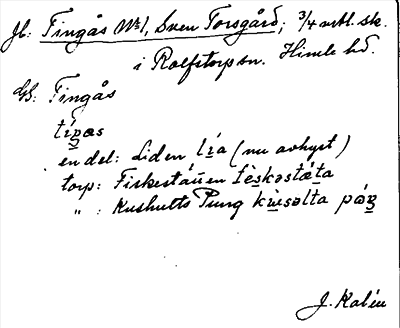 Jb: Tingås No 1, Sven Torsgård; 3/4 mtl. sk.
i Rolfstorp sn. Himle hd.
GS: Tingås
tíŋas
en del: Liden lía (nu avhyst)
torp: Fiskestáŭen féskəstǽta
" : Kushults Pung kùsəlta pǿŋ
J. Kalén